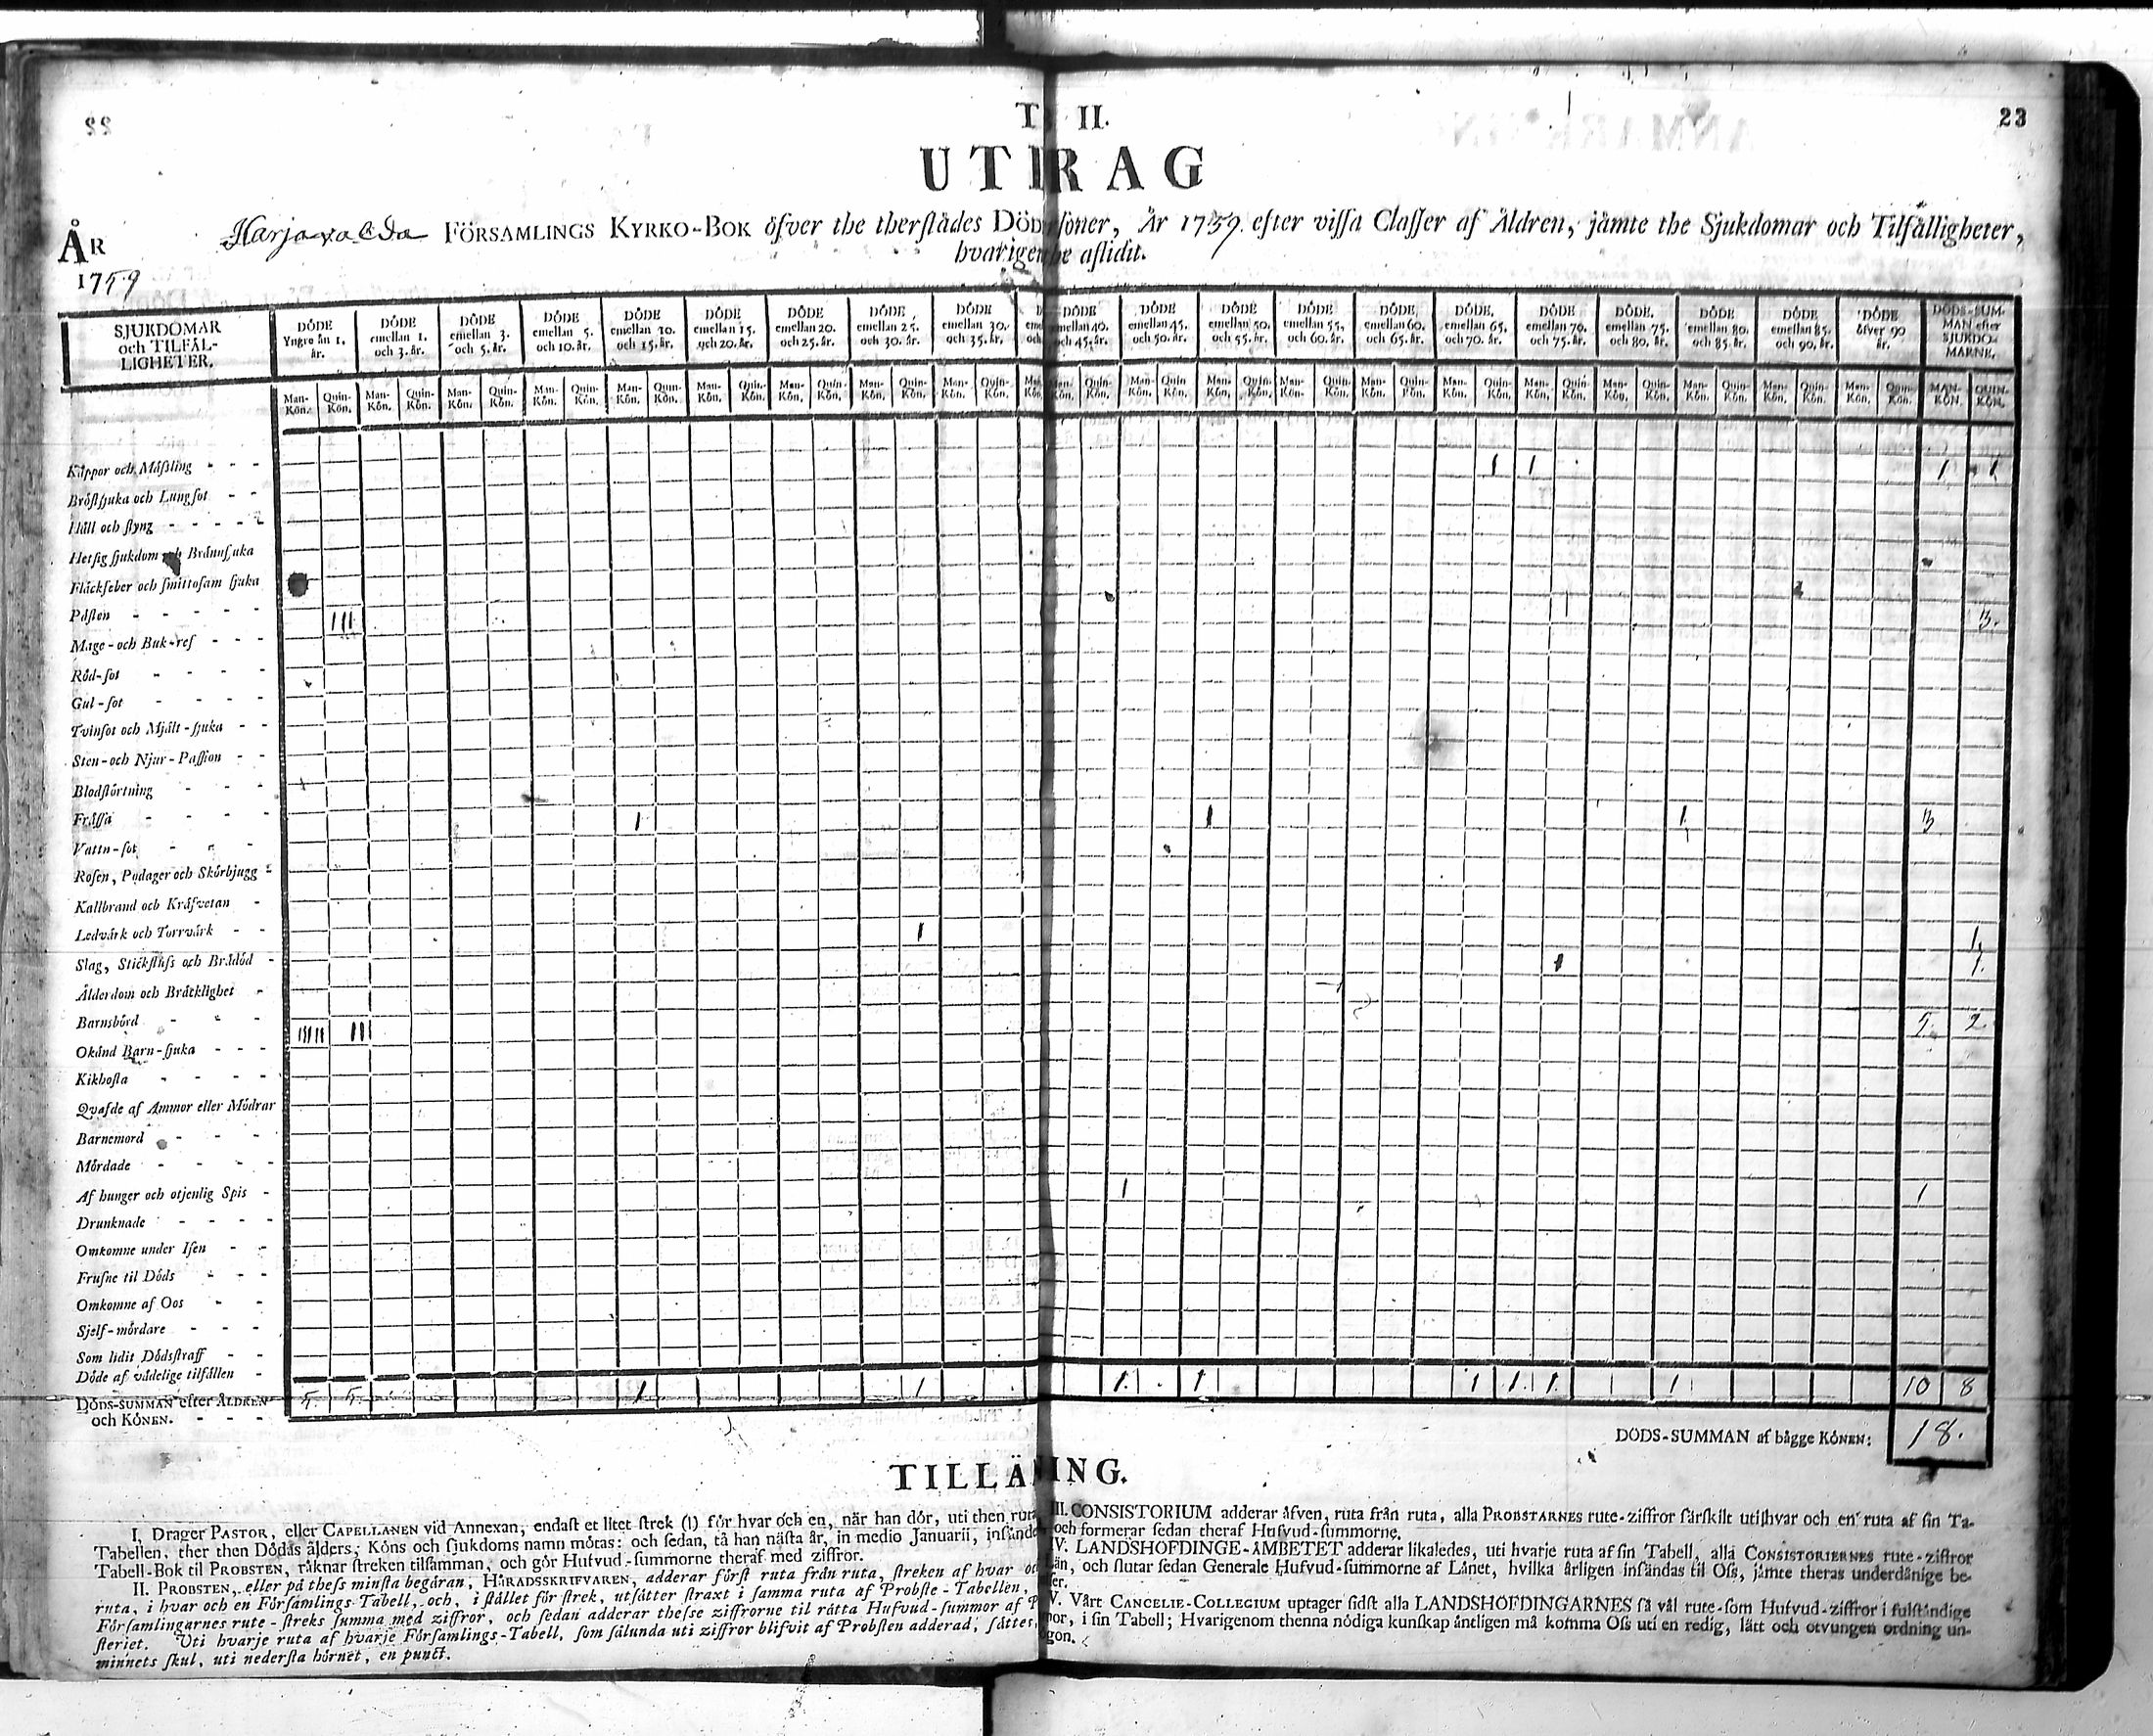 22
23
T II.
UTDRAG
ÅR
1759
Harjavalda FÖRSAMLINGS KYRKO-BOK öfver the therſtädes Död ſoner, År 1759. efter viſſa Claſſer af Äldren, jämte the Sjukdomar och Tilfälligheter,
hvarigen he aflidit.
SJUKDOMAR
och TILFÄL-
LIGHETER.
DÖDE Yngre än 1. år.
DÖDE emellan 1. och 3. år.
DÖDE emellan 3. och 5. år.
DÖDE emellan 5. och 10. år.
DÖDE emellan 10. och 15. år.
DÖDE emellan 15. och 20. år.
DÖDE emellan 20. och 25. år.
DÖDE emellan 25. och 30. år.
DÖDE emellan 30. och 35. år.
DÖDE emellan 40. och 45. år.
DÖDE emellan 45. och 50. år.
DÖDE emellan 50. och 55. år.
DÖDE emellan 55. och 60. år.
DÖDE emellan 60. och 65. år.
DÖDE, emellan 65. och 70. år.
DÖDE emellan 70. och 75. år.
DÖDE. emellan 75. och 80. år.
DÖDE emellan 80. och 85. år.
DÖDE emellan 85. och 90. år.
DÖDE öfver 90 år.
DÖDS-SUM-MAN efter SJUKDO-MARNE.
Man-Kön. Quin-Kön. Man-Kön. Quin-Kön. Man-Kön. Quin-Kön. Man-Kön. Quin-Kön. Man-Kön. Quin-Kön. Man-Kön. Quin-Kön. Man-Kön. Quin-Kön. Man-Kön. Quin-Kön. Man-Kön. Quin-Kön. Man-Kön. Quin-Kön. Man-Kön. Quin-Kön. Man-Kön. Quin-Kön. Man-Kön. Quin-Kön. Man-Kön. Quin-Kön. Man-Kön. Quin-Kön. Man-Kön. Quin-Kön. Man-Kön. Quin-Kön. Man-Kön. Quin-Kön. Man-Kön. Quin-Kön. Man-Kön. Quin-Kön. MAN-KÖN. QUIN-KÖN.
Kåppor och Måßling 1 1 1 1
Bröſtſjuka och Lungſot
Håll och ſtyng
Hetſig ſjukdom och Brännſjuka
Fläckfeber och ſmittoſam ſjuka
Påſten III 3.
Mage-och Buk-ref
Röd-ſot
Gul-ſot
Tvinſot och Mjält-ſjuka
Sten-och Njur-Paſſion
Blodſtörtning
Fråſſa 1 1 1 3
Vattn-ſot
Roſen, Podager och Skörbjugg
Kallbrand och Kräfvetan
Ledvärk och Torrvärk 1 1.
Slag, Stickfluſs och Brådöd 1 1.
Ålderdom och Bräcklighet
Barnsbörd 5. 2
Okänd Barn-ſjuka
Kikhoſta
Qvafde af Ammor eller Mödrar
Barnemord
Mördade
Af hunger och otjenlig Spis 1 1
Drunknade
Omkomne under Iſen
Fruſne til Döds
Omkomne af Oos
Sjelf-mördare
Som lidit Dödsſtraff
Döde af vådelige tilfällen
DÖDS-SUMMAN efter ÅLDREN och KÖNEN. 5. 5. 1 1 1. 1 1 1. 1 1 10 8
DÖDS-SUMMAN af bägge KÖNEN: 18.
TILLÄ ING.
I. Drager PASTOR, eller CAPELLANEN vid Annexan, endaſt et litet ſtrek (1) för hvar och en, när han dör, uti then ruta
Tabellen, ther then Dödas ålders, Köns och ſjukdoms namn mötas: och ſedan, tå han näſta år, in medio Januarii, inſände
Tabell-Bok til PROBSTEN, räknar ſtreken tilſamman, och gör Hufvud-ſummorne theraf med ziffror.
II. PROBSTEN, eller på theſs minſta begäran, HÄRADSSKRIFVAREN, adderar förſt ruta från ruta, ſtreken af hvar oc
ruta, i hvar och en Förſamlings-Tabell, och, i ſtället för ſtrek, utſätter ſtraxt i ſamma ruta af Probſte-Tabellen,
Förſamlingarnes rute-ſtreks ſumma med ziffror, och ſedan adderar theſse ziffrorne til rätta Hufvud-ſummor af P
ſteriet. Uti hvarje ruta af hvarje Förſamlings-Tabell, ſom ſålunda uti ziffror blifvit af Probſten adderad, ſättes,
minnets ſkul, uti nederſta hörnet, en punct.
III. CONSISTORIUM adderar äfven, ruta från ruta, alla PROBSTARNES rute-ziffror ſärſkilt uti hvar och en ruta af ſin Ta-
och formerar ſedan theraf Hufvud-ſummorne.
IV. LANDSHÖFDINGE-ÄMBETET adderar likaledes, uti hvarje ruta af ſin Tabell, alla CONSISTORIERNES rute-ziffror
Län, och ſlutar ſedan Generale Hufvud-ſummorne af Länet, hvilka årligen inſändas til Oſs, jämte theras underdånige be-
ſer.
V. Vårt CANCELIE-COLLEGIUM uptager ſidſt alla LANDSHÖFDINGARNES ſå väl rute-ſom Hufvud-ziffror i fulſtändige
mor, i ſin Tabell; Hvarigenom thenna nödiga kunſkap äntligen må komma Oſs uti en redig, lätt och otvungen ordning un-
ögon.